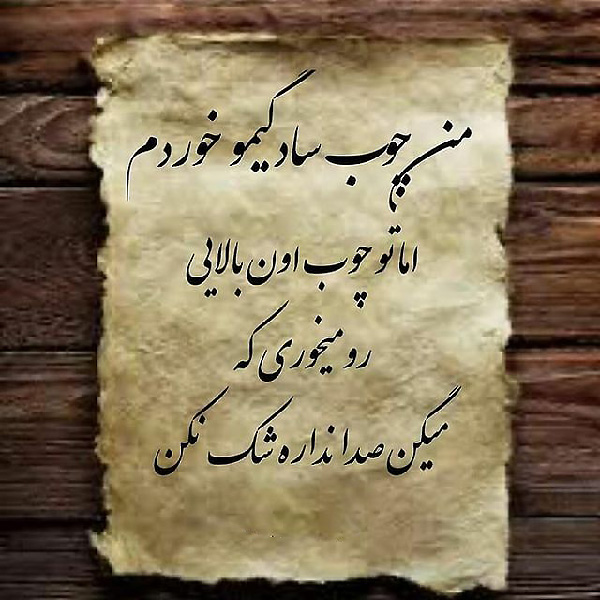 من چوب سادگیمو خوردم
اما تو چوب اون بالایی
رو میخوری که
میگن صدا نداره شک نکن